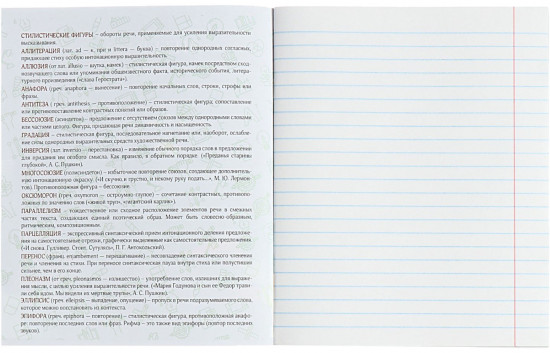 СТИЛИСТИЧЕСКИЕ ФИГУРЫ – обороты речи, применяемые для усиления выразительности
высказывания.
АЛЛИТЕРАЦИЯ (лат. ad – к, при и littera – буква) – повторение однородных согласных,
придающее стиху особую интонационную выразительность.
АЛЛЮЗИЯ (от лат. allusio – шутка, намек) – стилистическая фигура, намек посредством сход-
нозвучащего слова или упоминания общеизвестного факта, исторического события, литера-
турного произведения («слава Герострата»).
АНАФОРА (греч. anaphora – вынесение) – повторение начальных слов, строк, строфы или
фразы.
АНТИТЕЗА (греч. antithesis, – противоположение) – стилистическая фигура; сопоставление
или противопоставление контрастных понятий или образов.
БЕССОЮЗИЕ (асиндетон) – предложение с отсутствием союзов между однородными словами
или частями целого. Фигура, придающая речи динамичность и насыщенность.
ГРАДАЦИЯ – стилистическая фигура, последовательное нагнетание или, наоборот, ослабле-
ние силы однородных выразительных средств художественной речи.
ИНВЕРСИЯ (лат. inversio – перестановка) – изменение обычного порядка слов в предложении
для придания им особого смысла. Как правило, в обратном порядке. («Преданья старины
глубокой», А. С. Пушкин).
МНОГОСОЮЗИЕ (полисиндетон) – избыточное повторение союзов, создающее дополнитель-
ную интонационную окраску. («И скучно и грустно, и некому руку подать...», М. Ю. Лермон-
тов). Противоположная фигура – бессоюзие.
ОКСЮМОРОН (греч. oxymoron – остроумно-глупое) – сочетание контрастных, противопо-
ложных по значению слов («живой труп», «гигантский карлик»).
ПАРАЛЛЕЛИЗМ – тождественное или сходное расположение элементов речи в смежных
частях текста, создающих единый поэтический образ. Может быть словесно-образным,
ритмическим, композиционным.
ПАРЦЕЛЛЯЦИЯ – экспрессивный синтаксический прием интонационного деления предложе-
ния на самостоятельные отрезки, графически выделенные как самостоятельные предложения
(«И снова. Гулливер. Стоит. Сутулясь», П. Г. Антокольский).
ПЕРЕНОС (франц. enjambement – перешагивание) – несовпадение синтаксического членения
речи и членения на стихи. При переносе синтаксическая пауза внутри стиха или полустишия
сильнее, чем в его конце.
ПЛЕОНАЗМ (от греч. pleonasmos – излишество) – употребление слов, излишних для выраже-
ния мысли, с целью усиления выразительности речи. («Мария Годунова и сын ее Федор трави-
ли себя ядом. Мы видели их мертвые трупы», А. С. Пушкин).
ЭЛЛИПСИС (греч. ellejpsis – выпадение, опущение) – пропуск в речи подразумеваемого слова,
которое можно восстановить из контекста.
ЭПИФОРА (греч. epiphora – повторение) – стилистическая фигура, противоположная анафо-
ре: повторение последних слов или фраз. Рифма – это также вид эпифоры (повтор последних
звуков).